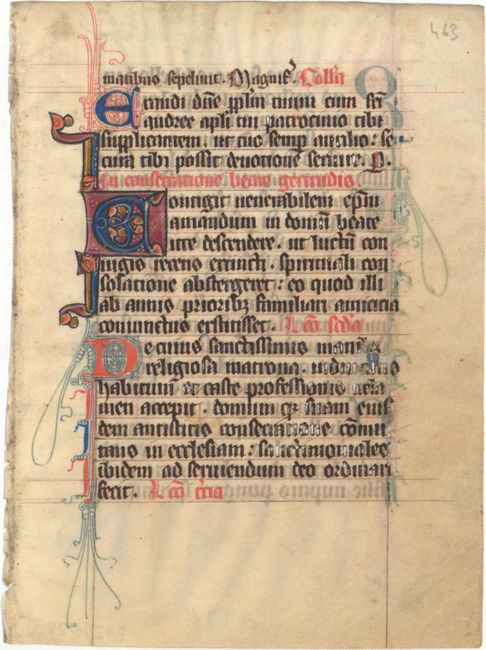 463
matibus sepeliuit. Magnif' Collā
Exaudi dñe pplm tuum cum sci
andree apli tui patrocinio tibi
supplicantem. ut tuo semp auxilio: se
cura tibi possit deuotione seruire. P.
In consecratione beate gertrudis.
Contigit uenerabilem epm
amandum in domū beate
itte descendere. ut luctū con
iugis recens extincti. spirituali con
solatione abstergeret: eo quod illi
ab annis prioribꝫ familiari amicicia
coniunctus extitisset. Lc̄o sc̄da
De cuius sanctissimis manibꝫ
religiosa matrona. uiduitatis
habitum et caste professionis uela
men accepit. domum qꝫ suam eius
dem antistitis consecratione
in ecclesiam: sanctimoniales
ibidem ad seruiendum deo ordinari
fecit. Lc̄o tr̄cia